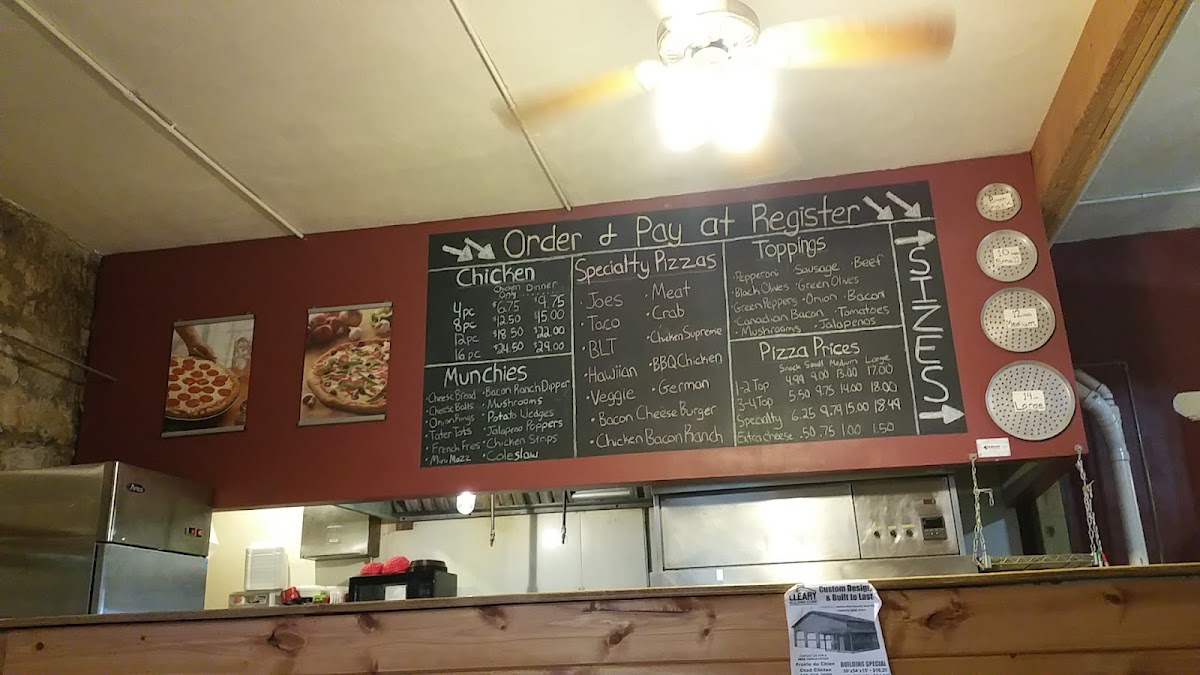 Order & Pay at Register
Chicken
Chicken Only Dinner
4pc $6.75 $9.75
8pc $12.50 $15.00
12pc $18.50 $22.00
16pc $24.50 $29.00
Munchies
Cheese Bread
Cheese Balls
Onion Rings
Tater Tots
French Fries
Mini Mozz
Bacon Ranch Dipper
Mushrooms
Potato Wedges
Jalapeno Poppers
Chicken Strips
Coleslaw
Specialty Pizzas
Joes
Taco
BLT
Hawiian
Veggie
Meat
Crab
Chicken Supreme
BBQ Chicken
German
Bacon Cheese Burger
Chicken Bacon Ranch
Toppings
Pepperoni Sausage Beef
Black Olives Green Olives
Green Peppers Onion Bacon
Canadian Bacon Tomatoes
Mushrooms Jalapenos
Pizza Prices
Snack Small Medium Large
4.99 9.00 13.00 17.00
1-2 Top
3-4 Top 5.50 9.75 14.00 18.00
Specialty 6.25 9.79 15.00 18.49
Extra cheese .50 .75 1.00 1.50
SIZES
10 in
Small
12 in
Medium
14 in
Large
CLEARY
Custom Design,
& Built to Last
Prairie du Chien
Chad Clinton
BUILDING SPECIAL